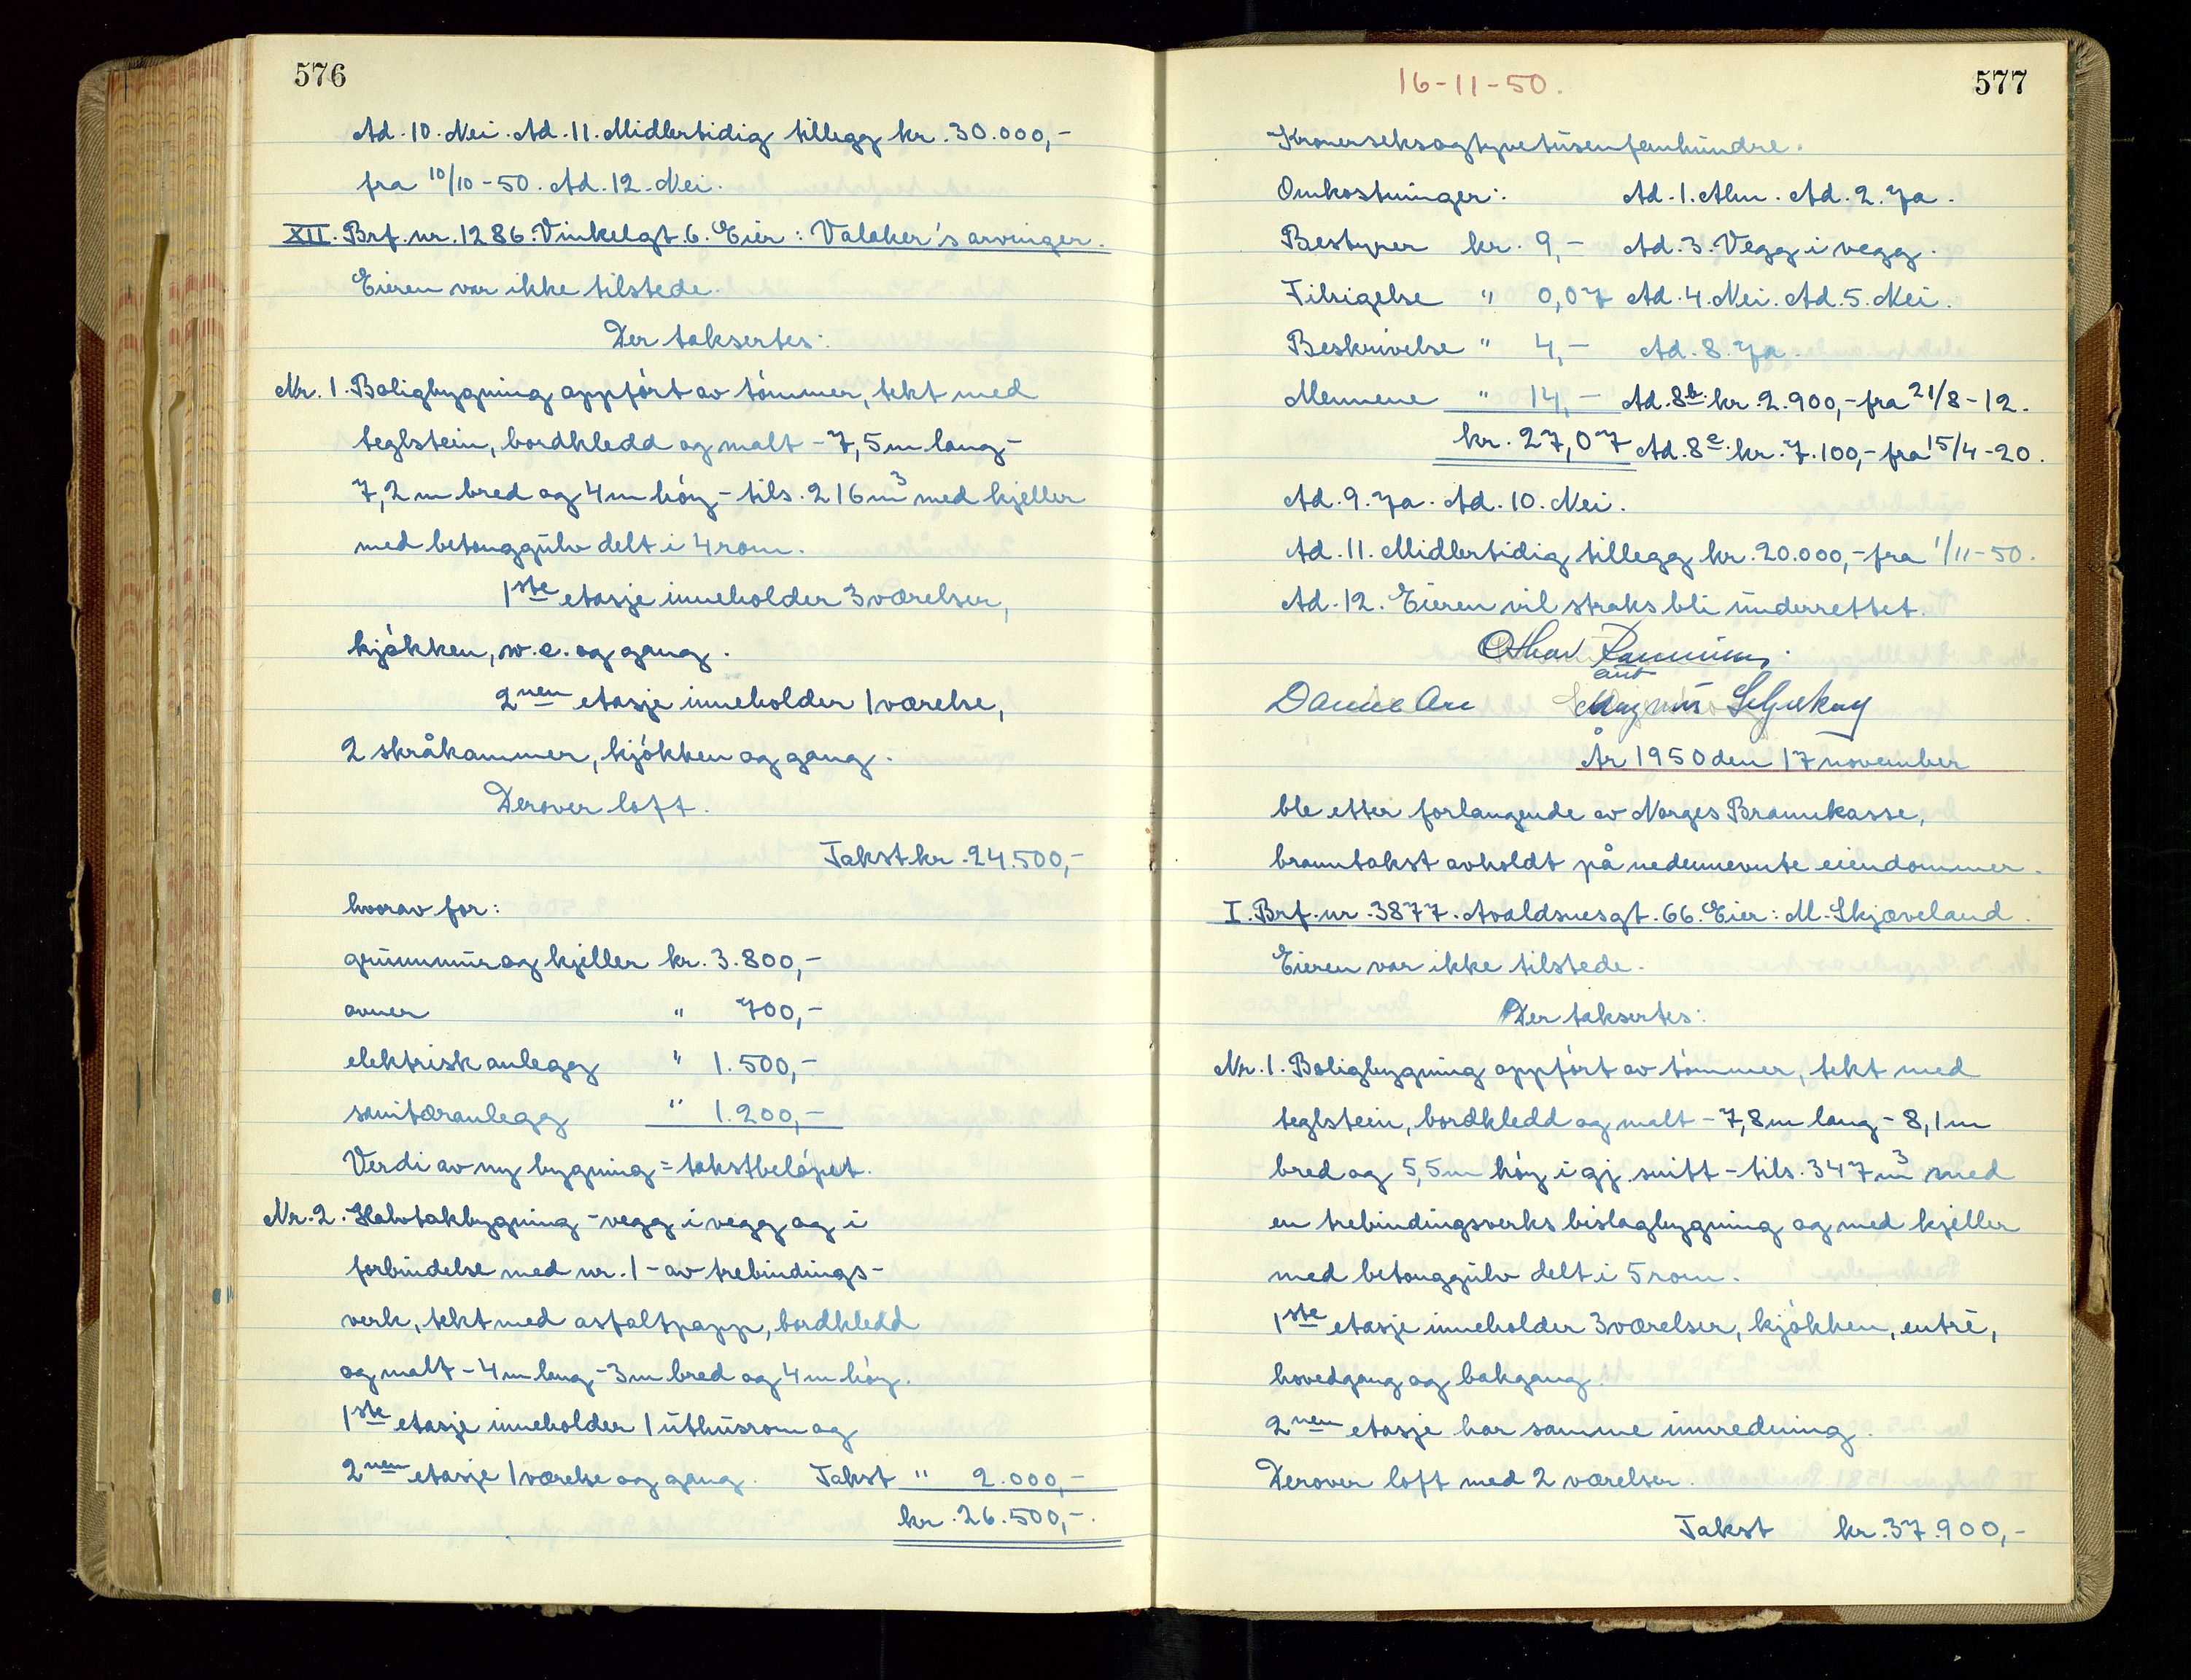 576
Ad. 10. Nei. Ad. 11. Midlertidig tillegg kr. 30.000,-
fra 10/10-50. Ad. 12. Nei.
XII. Brf. nr. 1286. Vinkelgt. 6. Eier: Valaker's arvinger.
Eieren var ikke tilstede.
Der taksertes:
Nr. 1. Boligbygning oppført av tømmer, tekt med
teglstein, bordkledd og malt - 7,5 m lang -
7,2 m bred og 4 m høy - tils. 216 m³ med kjeller
med betonggulv delt i 4 rom.
1ste etasje inneholder 3 værelser,
kjøkken, w.c. og gang.
2nen etasje inneholder 1 værelse,
2 skråkammer, kjøkken og gang.
Derover loft.
Takst kr. 24.500,-
hvorav for:
grunnmur og kjeller kr. 3.800,-
ovner " 700,-
elektrisk anlegg " 1.500,-
sanitæranlegg " 1.200,-
Verdi av ny bygning = takstbeløpet.
Nr. 2. Halvtakbygning - vegg i vegg og i
forbindelse med nr. 1 - av trebindings-
verk, tekt med asfaltpapp, bordkledd
og malt - 4 m lang - 3 m bred og 4 m høy.
1ste etasje inneholder 1 uthusrom og
2nen etasje 1 værelse og gang. Takst " 2.000,-
kr. 26.500,-
16-11-50.
577
Kronerseksogtyvetusenfemhundre.
Omkostninger: Ad. 1. Alm. Ad. 2. Ja.
Bestyrer kr. 9,- Ad. 3. Vegg i vegg.
Tilsigelse " 0,07 Ad. 4. Nei. Ad. 5. Nei.
Beskrivelse " 4,- Ad. 8. Ja.
Mennene " 14,- Ad. 8b. kr. 2.900,- fra 21/8-12.
kr. 27,07 Ad. 8c. kr. 7.100,- fra 15/4-20.
Ad. 9. Ja. Ad. 10. Nei.
Ad. 11. Midlertidig tillegg kr. 20.000,- fra 1/11-50.
Ad. 12. Eieren vil straks bli underrettet.
År 1950 den 17 november
ble etter forlangende av Norges Brannkasse,
branntakst avholdt på nedennevnte eiendommer.
I. Brf. nr. 3877. Avaldsnesgt. 66. Eier: M. Skjæveland.
Eieren var ikke tilstede.
Der taksertes:
Nr. 1. Boligbygning oppført av tømmer, tekt med
teglstein, bordkledd og malt - 7,8 m lang - 8,1 m
bred og 5,5 m høy i gj. snitt - tils. 347 m³ med
en trebindingsverks bislagbygning og med kjeller
med betonggulv delt i 5 rom.
1ste etasje inneholder 3 værelser, kjøkken, entré,
hovedgang og bakgang.
2nen etasje har samme innredning.
Derover loft med 2 værelser.
Takst kr. 37.900,-